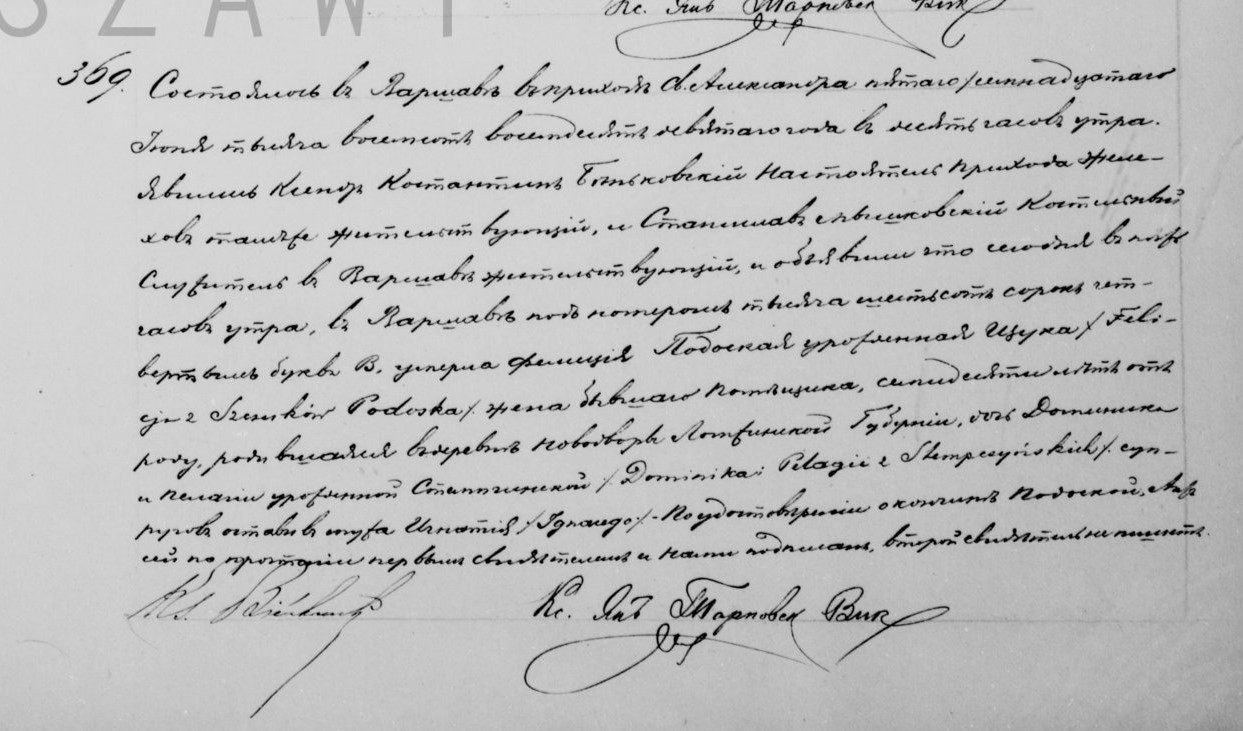 SZAWI
Кс. Янъ Тарновск Вик
369.
Состоялось въ Варшавѣ въ приходѣ Св. Александра пятаго /семнадцатаго
Іюня тысяча восемсотъ восемдесятъ девятаго года въ десять часовъ утра.
явились Ксендзъ Костантинъ Боньковскій Настоятель прихода Желе-
ховъ тамъже жительствующій, и Станиславъ Костельный
Служитель въ Варшавѣ жительствующій, и объявили что сегодня въ
часовъ утра, въ Варшавѣ подъ номеромъ тысяча шестьсотъ сорокъ чет-
вертымъ буквъ В, умерла Фелиція Подоская урожденная Щука / Feli-
cja z Szczuków Podoska / жена бывшаго помѣщика, семидесяти лѣтъ отъ
роду, родившаяся въ деревнѣ Новодворъ Ломжинской Губерніи, дочь Доминика
и Пелагіи урожденной / Dominika i Pelagii z Stempczyńskich /. суп-
руговъ оставивъ мужа Игнатія / Ignacego /.- По удостовѣреніи о кончинѣ Подоской, Актъ
сей по прочтеніи первымъ свидѣтелемъ и Нами подписанъ, второй свидѣтель не пишетъ.
Ks. Кс. Янъ Тарновск Вик